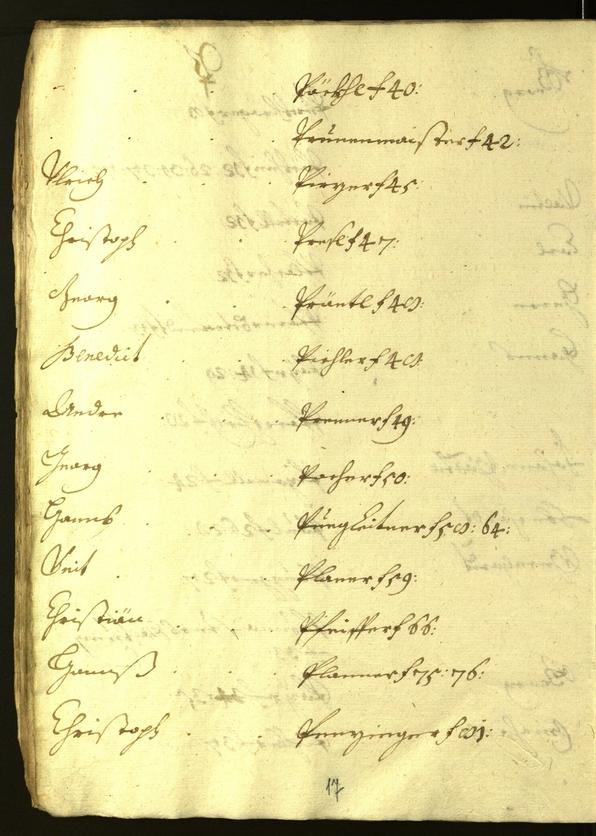 P
. . Päckhl f 40:
. . Prünenmaister f 42:
Ulrich . . Pirger f 45
Christoph . . Presl f 47:
Georg . . Präntl f 48:
Benedict . . Pichler f 48:
Andre . . Prenner f 49:
Georg . . Pacher f 50:
Hanns . . Püngleitner f 58: 64:
Veit . . Planer f 59:
Christian . . Pfeiffer f 66:
Hannß . . Planner f 75: 76:
Christoph . . Penzinger f 81:
17